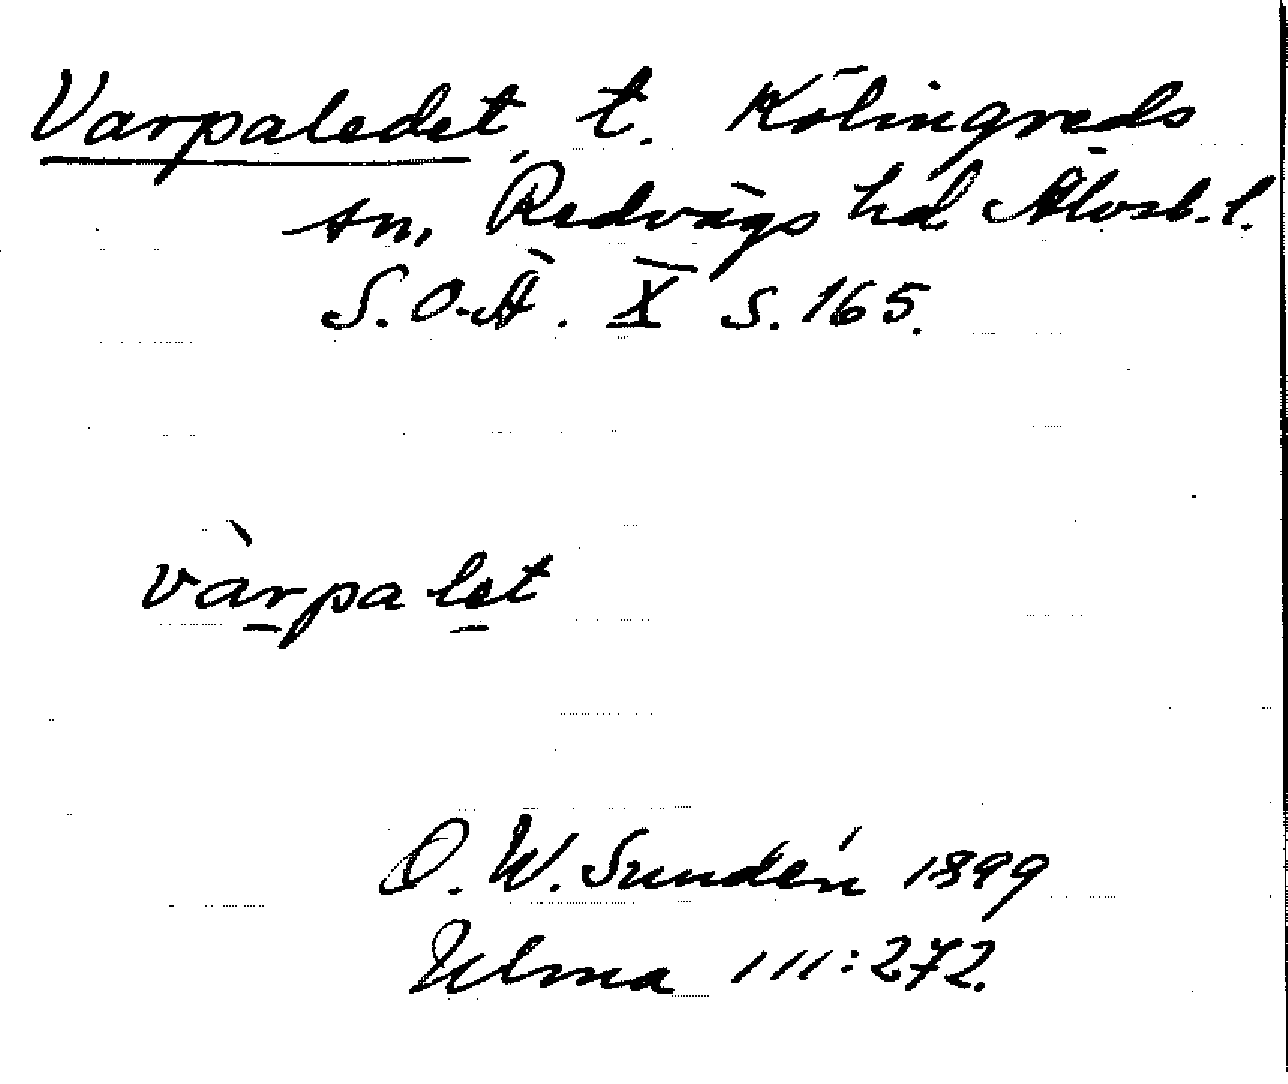 Varpaledet, t. Kölingreds
sn, Redvägs hd Älvsb. l.
S.O.Ä. X s. 165.
vàrpalet
O. W. Sundén 1899
Ulma 111:272.